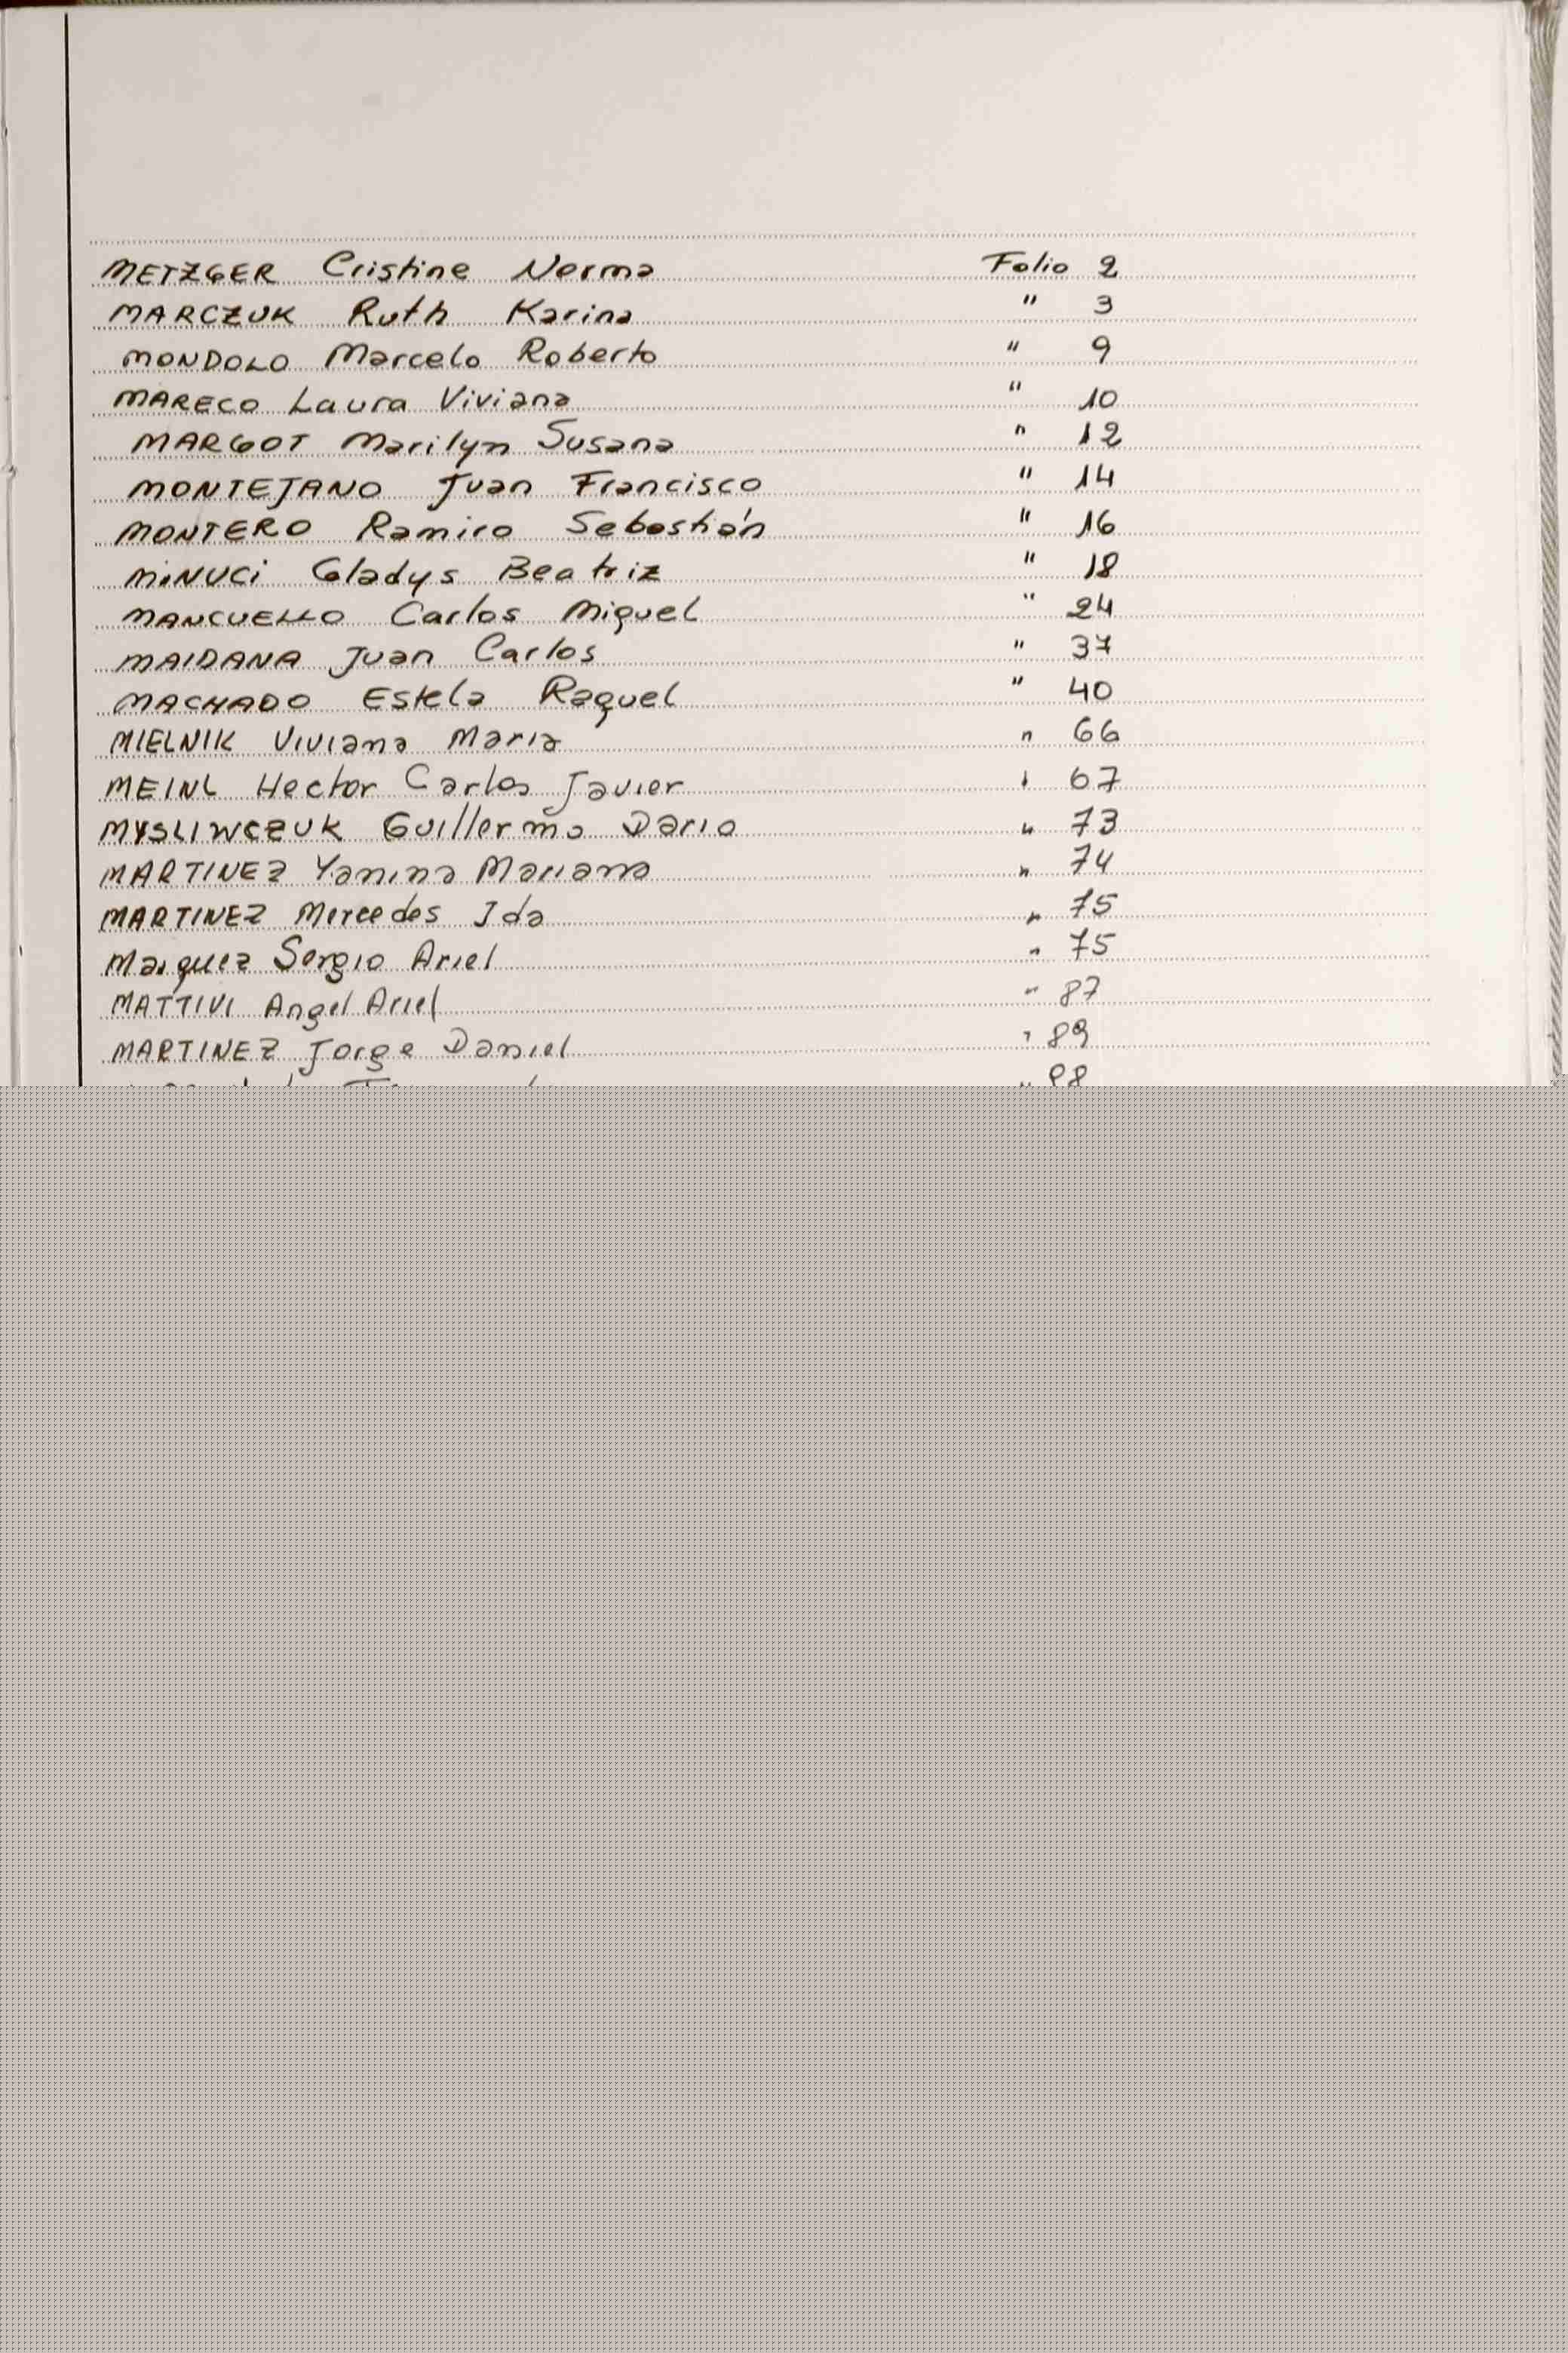 METZGER Cristine Norma Folio 2
MARCZUK Ruth Karina " 3
MONDOLO Marcelo Roberto " 9
MARECO Laura Viviana " 10
MARGOT Marilyn Susana " 12
MONTEJANO Juan Francisco " 14
MONTERO Ramiro Sebastián " 16
MiNUCi Gladys Beatriz " 18
MANCUELLO Carlos Miguel " 24
MAIDANA Juan Carlos " 37
MACHADO Estela Raquel " 40
MIELNIK Viviana Maria " 66
MEINL Hector Carlos Javier " 67
MYSLIWCZUK Guillermo Dario " 73
MARTINEZ Yanina Mariana " 74
MARTINEZ Mercedes Ida " 75
Marquez Sergio Ariel " 75
MATTIVI Angel Ariel " 87
MARTINEZ Jorge Daniel " 89